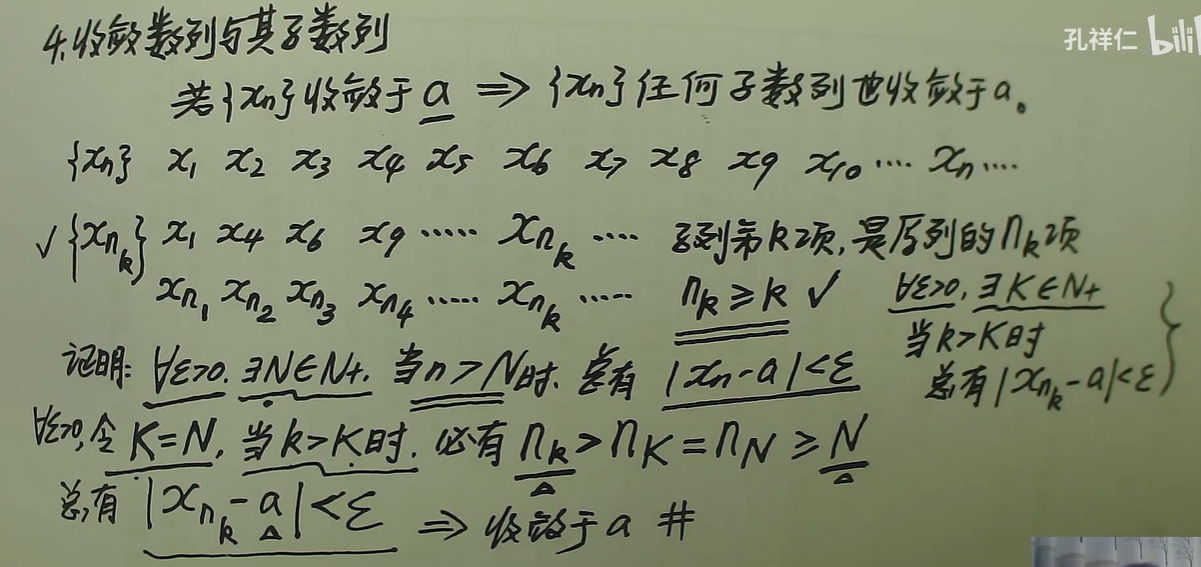 4.收敛数列与其子数列
孔祥仁 bili
若{xn}收敛于a ⇒ {xn}任何子数列也收敛于a。
{xn} x1 x2 x3 x4 x5 x6 x7 x8 x9 x10 …. xn ….
✓ {xnk} x1 x4 x6 x9 ….. xnk …. 子列第k项,是原列的nk项
xn1 xn2 xn3 xn4 ….. xnk ….. nk ≥ k ✓ ∀ε>0, ∃K∈N+
当k>K时
总有|xnk-a|<ε
证明: ∀ε>0. ∃N∈N+. 当n>N时. 总有 |xn-a|<ε
∀ε>0,令K=N, 当k>K时. 必有 nk > nK = nN ≥ N
总有 |xnk-a|<ε ⇒ 收敛于a #